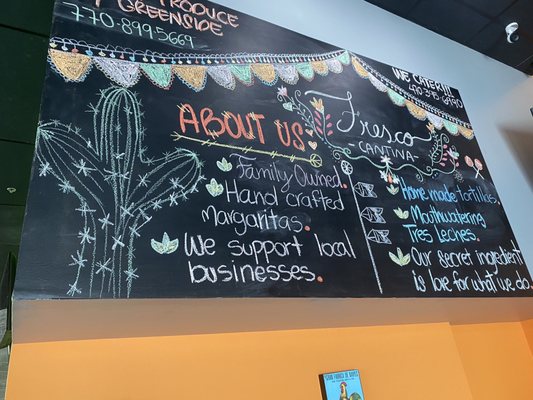 PRODUCE
GREENSIDE
770-899-5669
WE CATER!!!
ABOUT US
Family Owned.
Hand crafted
margaritas.
We support local
businesses.
Fresco
-CANTINA-
Home made Tortillas.
Mouthwatering
Tres Leches.
Our secret ingredient
is love for what we do.